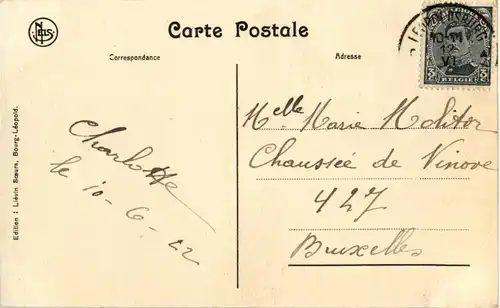 NELS
Carte Postale
Correspondance
Adresse
LEOPOLDSBURG
10-11
12
VI
3 BELGIË 3
Melle Marie Molitor
Chaussée de Ninove
427
Bruxelles
Charlotte
le 10-6-22
Edition : Liérin Sœurs, Bourg-Léopold.